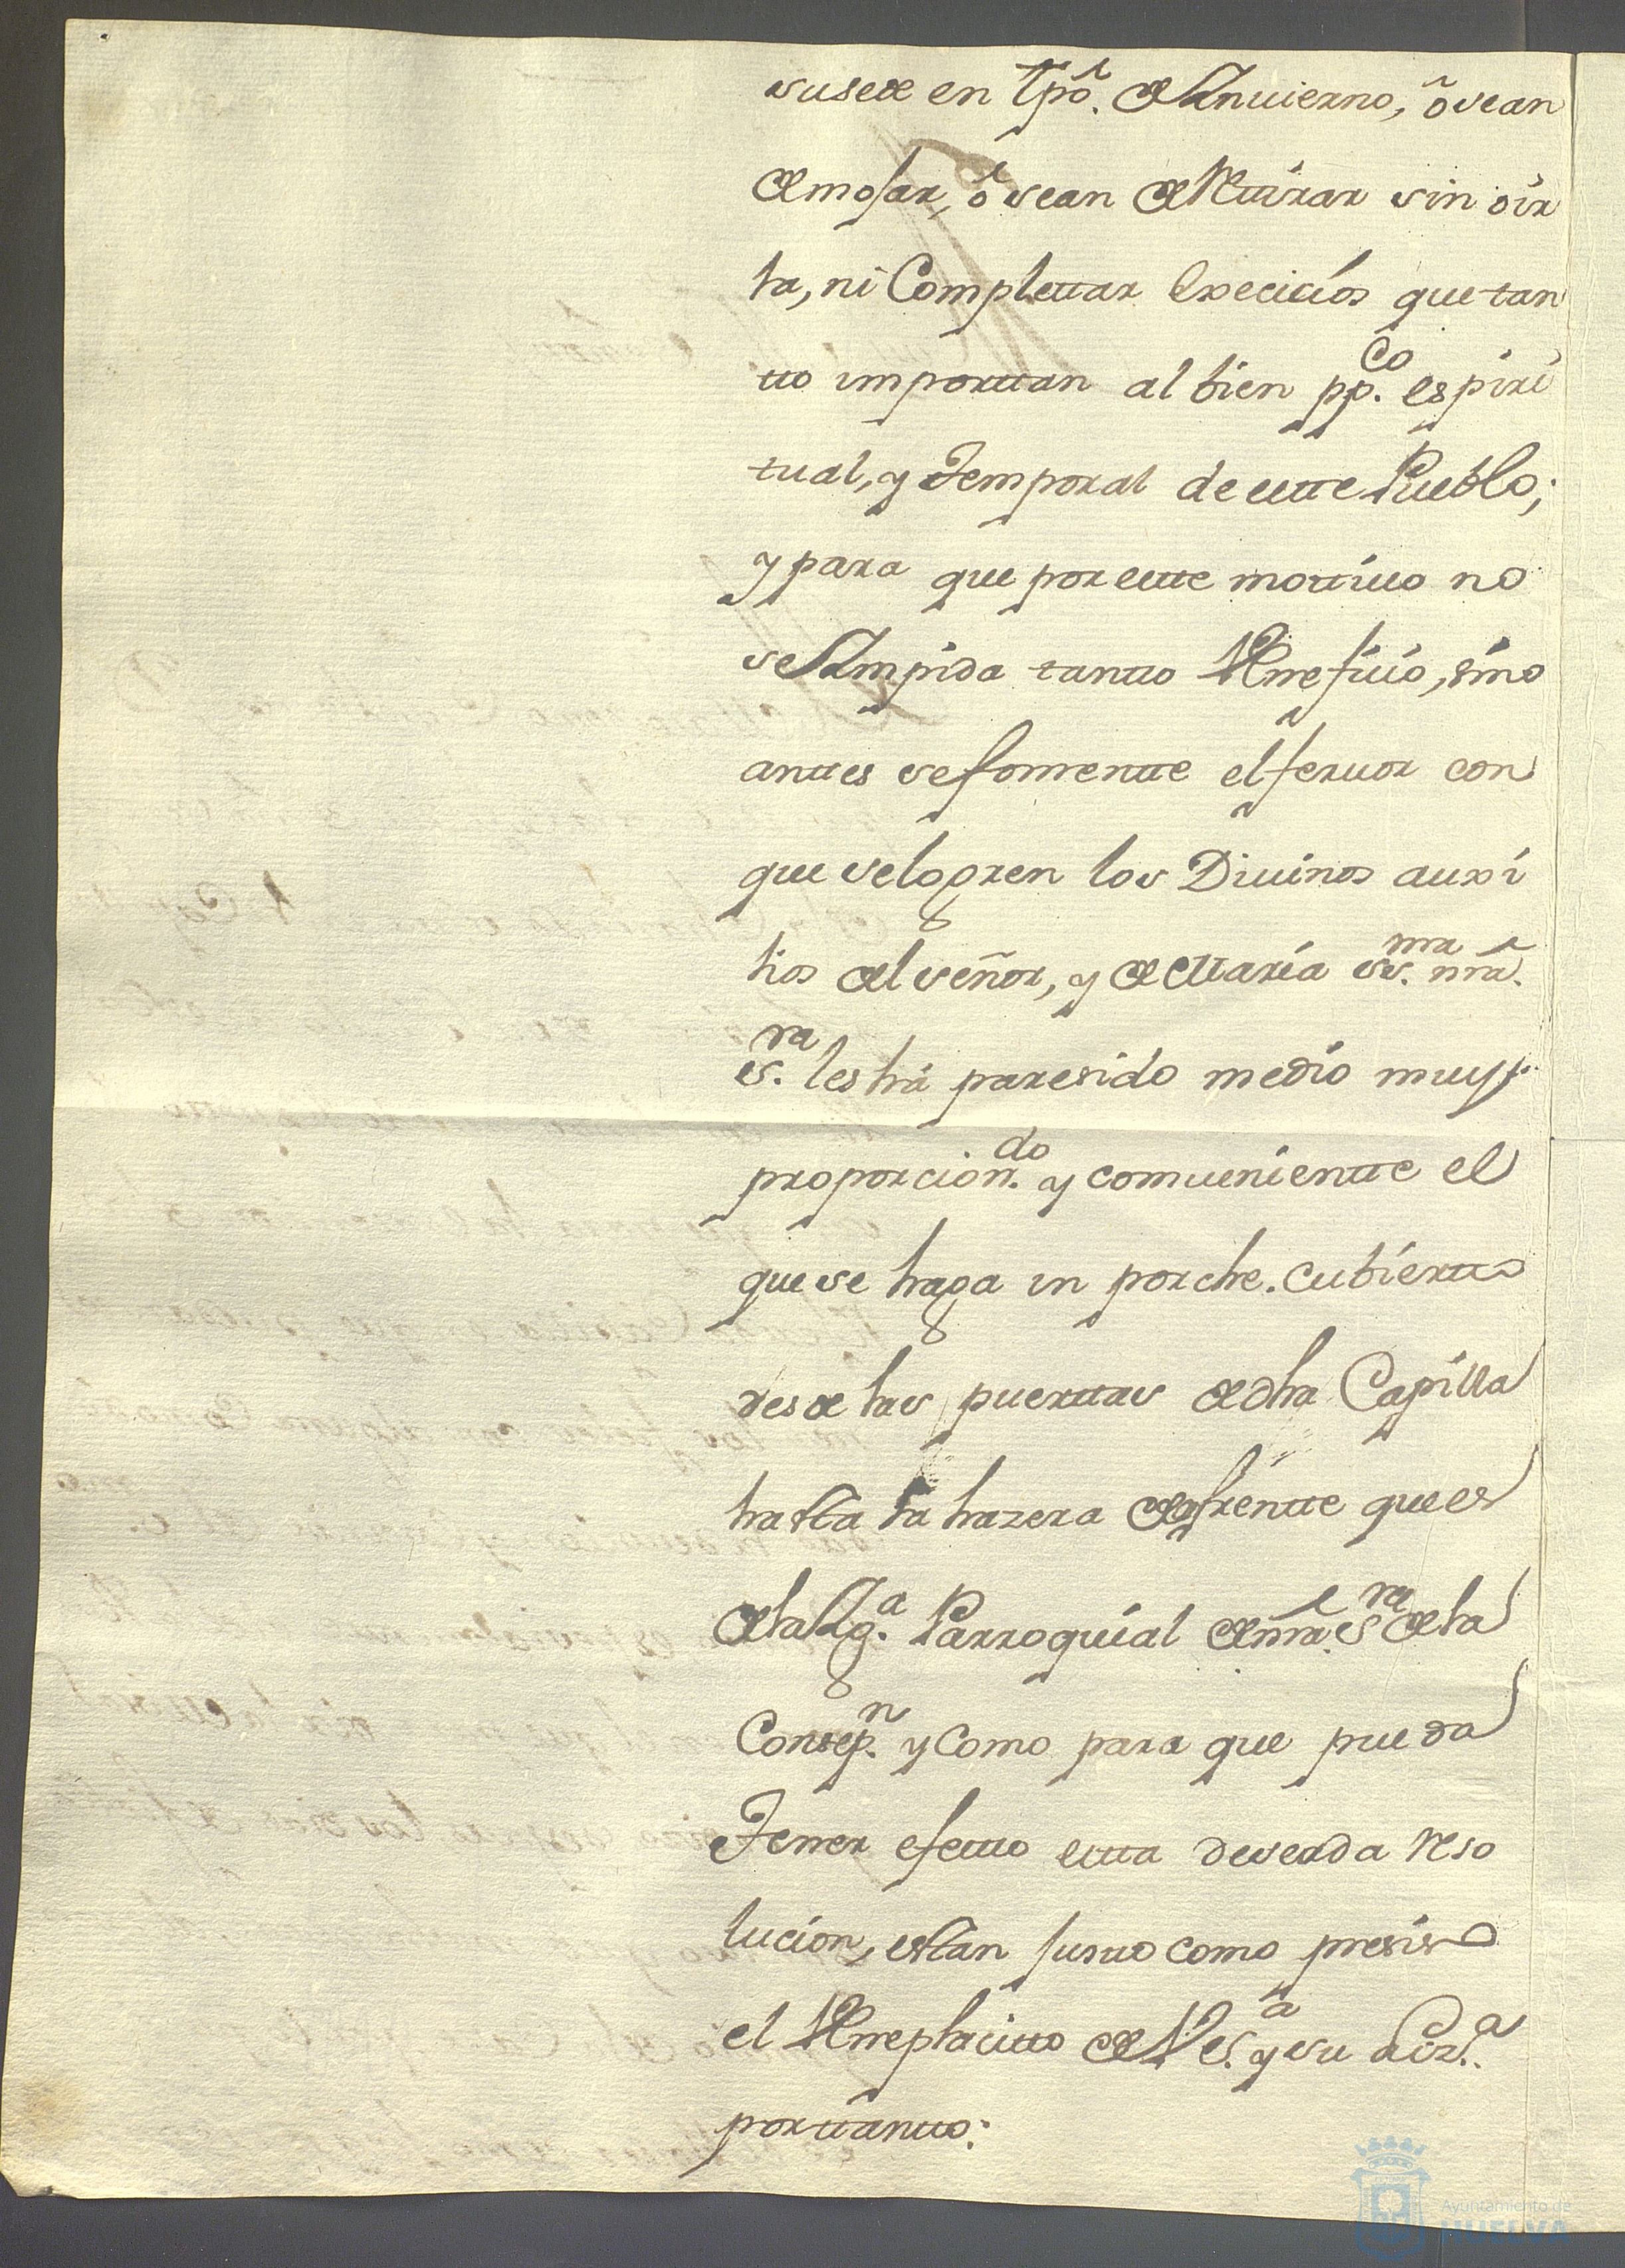 susede en tpô. de Inuierno, ô sean
de mojar, ô sean de Retirar sin oir
la, ni Complettar Execicios que tan
tto importtan al bien pp.co espiri
tual, y Temporal de estte Pueblo;
y para que por estte mottiuo no
se Impida tantto Veneficio, sino
anttes se fomentte el feruor con
que se logren los Diuinos auxi
lios del señor, y de Maria ss.ma nrâ.
s.ra les há paresido medio muy
proporcion.do y comuenientte el
que se haga un porche. cubiertto
desde las puerttas de dha Capilla
hasta la hazera de frentte que es
de la Ygl.a Parroquial de nrâ. s.ra de la
Consep.n y Como para que pueda
Tener efectto estta deseada Reso
lucion, es tan justto como presiso
el Veneplacitto de V S.a y su Liz.a
por ttantto:
Ayuntamiento de
HUELVA